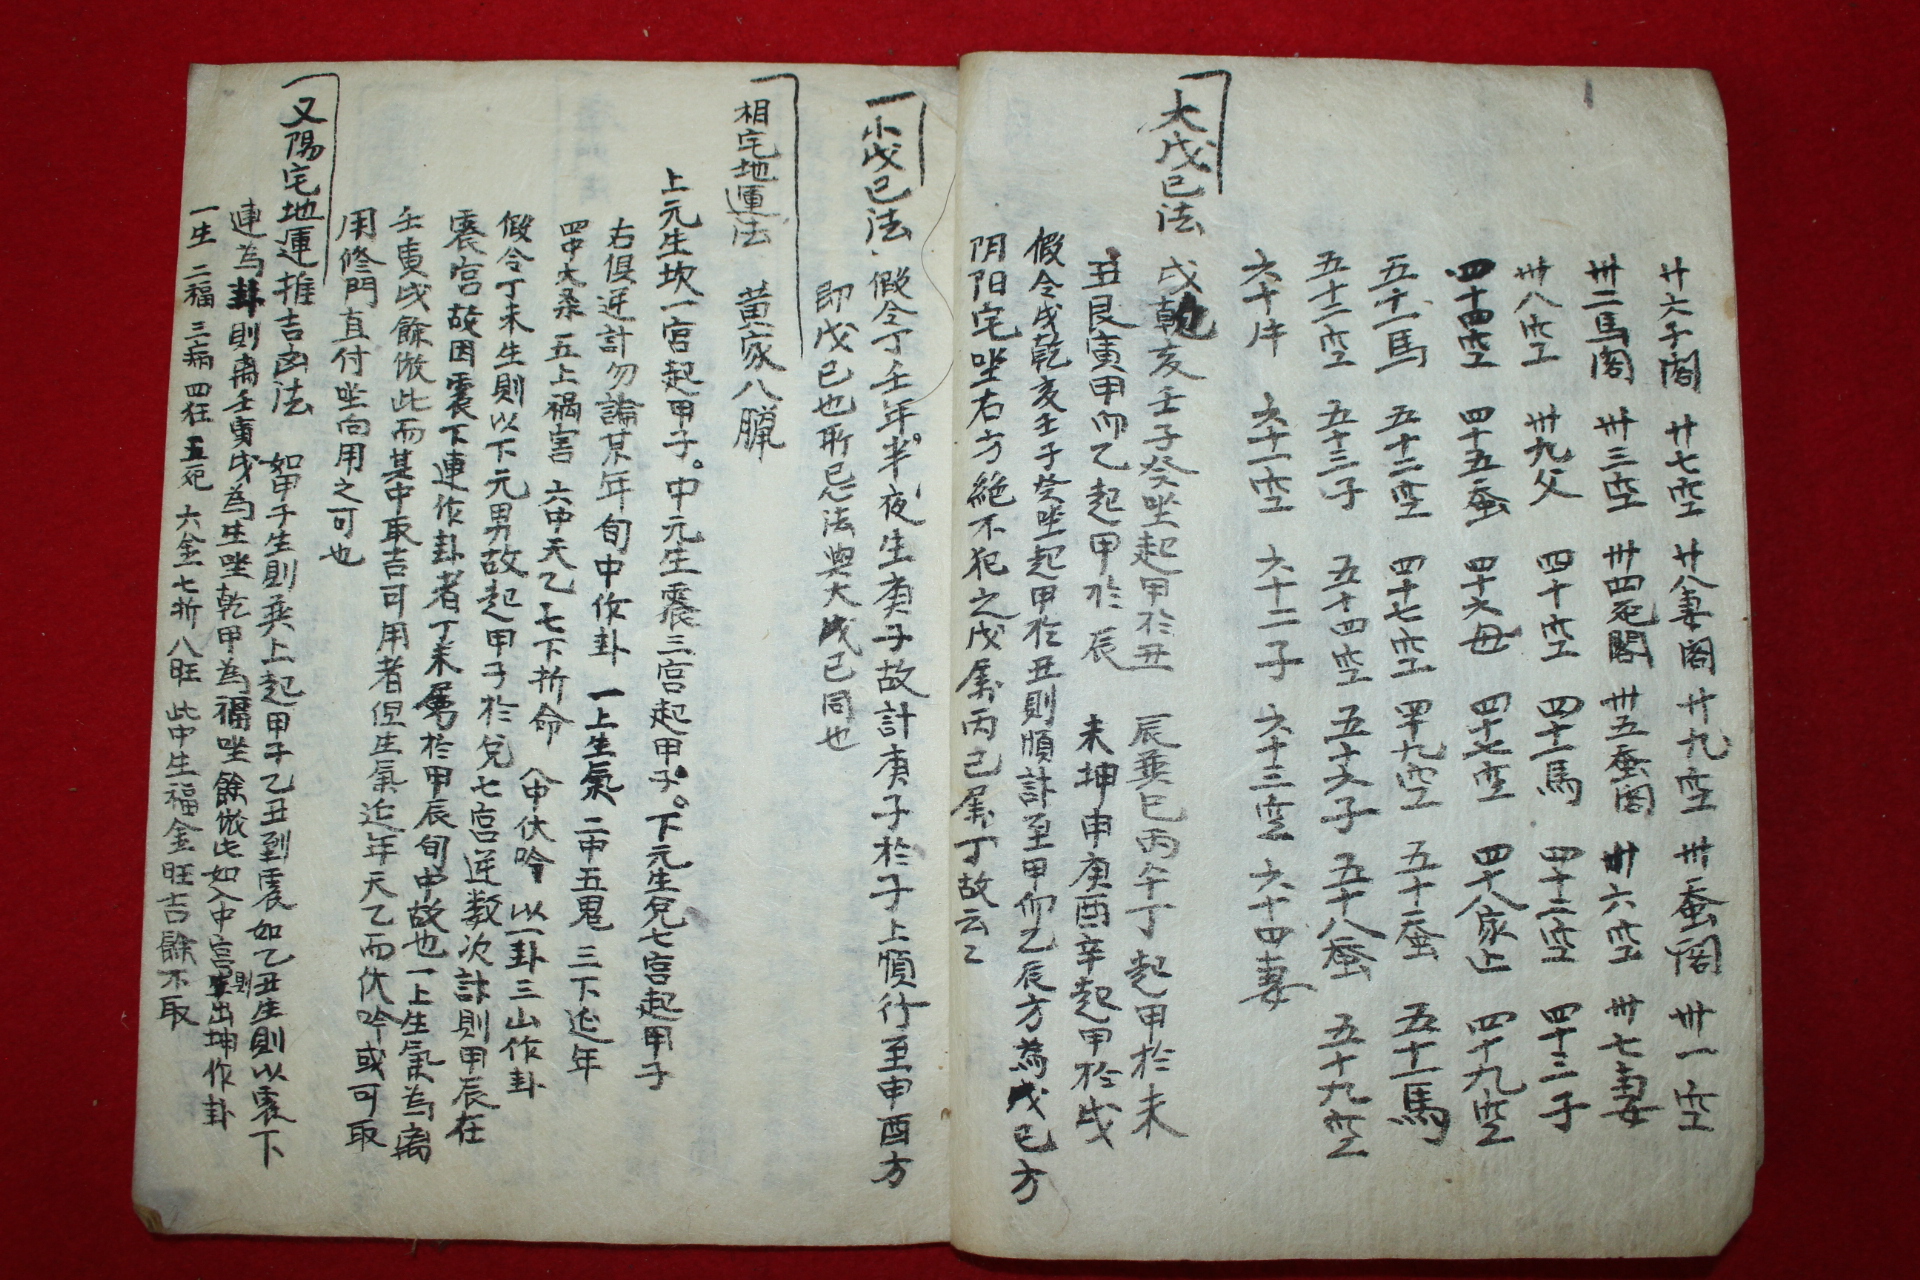 廿六子閣 廿七空 廿八妻閣 廿九空 卅蚕閣 卅一空
卅二馬閣 卅三空 卅四死閣 卅五蚕閣 卅六空 卅七妻
卅八空 卅九父 四十空 四十一馬 四十二空 四十三子
四十四空 四十五蚕 四十六母 四十七空 四十八家上 四十九空
五十一馬 五十二空 四十七空 四十九空 五十蚕 五十一馬
五十二空 五十三子 五十四空 五十六子 五十八蚕 五十九空
六十 六十一空 六十二子 六十三空 六十四妻
大戊己法 戌乾亥壬子癸坐起甲於丑 辰巽巳丙午丁起甲於未
丑艮寅甲卯乙起甲於辰 未坤申庚酉辛起甲於戌
假令戌乾亥壬子癸坐起甲於丑則順計至甲卯乙辰方為戊己方
阴阳宅坐右方絶不犯之戊属丙己属丁故云云
一小戊己法 假令丁壬年半夜生庚子故計庚子於子上順行至申酉方
即戊己也所忌法與大戊己同也
相宅地運法 黄家八
上元生坎一宮起甲子。中元生震三宮起甲子。下元生兌七宮起甲子
右俱逆計勿論某年旬中作卦 一上生氣 二中五鬼 三下延年
四中六柔 五上禍害 六中天乙 七下折命 八中伏吟 以一卦三山作卦
假令丁未生則以下元男故起甲子於兌七宮逆数次計則甲辰在
震宮故因震下連作卦者丁未属於甲辰旬中故也一上生氣為离
壬寅戌餘倣此而其中取吉可用者但生氣延年天乙而伏吟或可取
用修門直付坐向用之可也
又陽宅地運推吉凶法 如甲子生則巽上起甲子乙丑到震如乙丑生則以震下
連為卦則离壬寅戌為生坐乾甲為福坐餘倣此如入中宮則出坤作卦
一生 二福 三病 四狂 五死 六金 七折 八旺 此中生福金旺吉餘不取